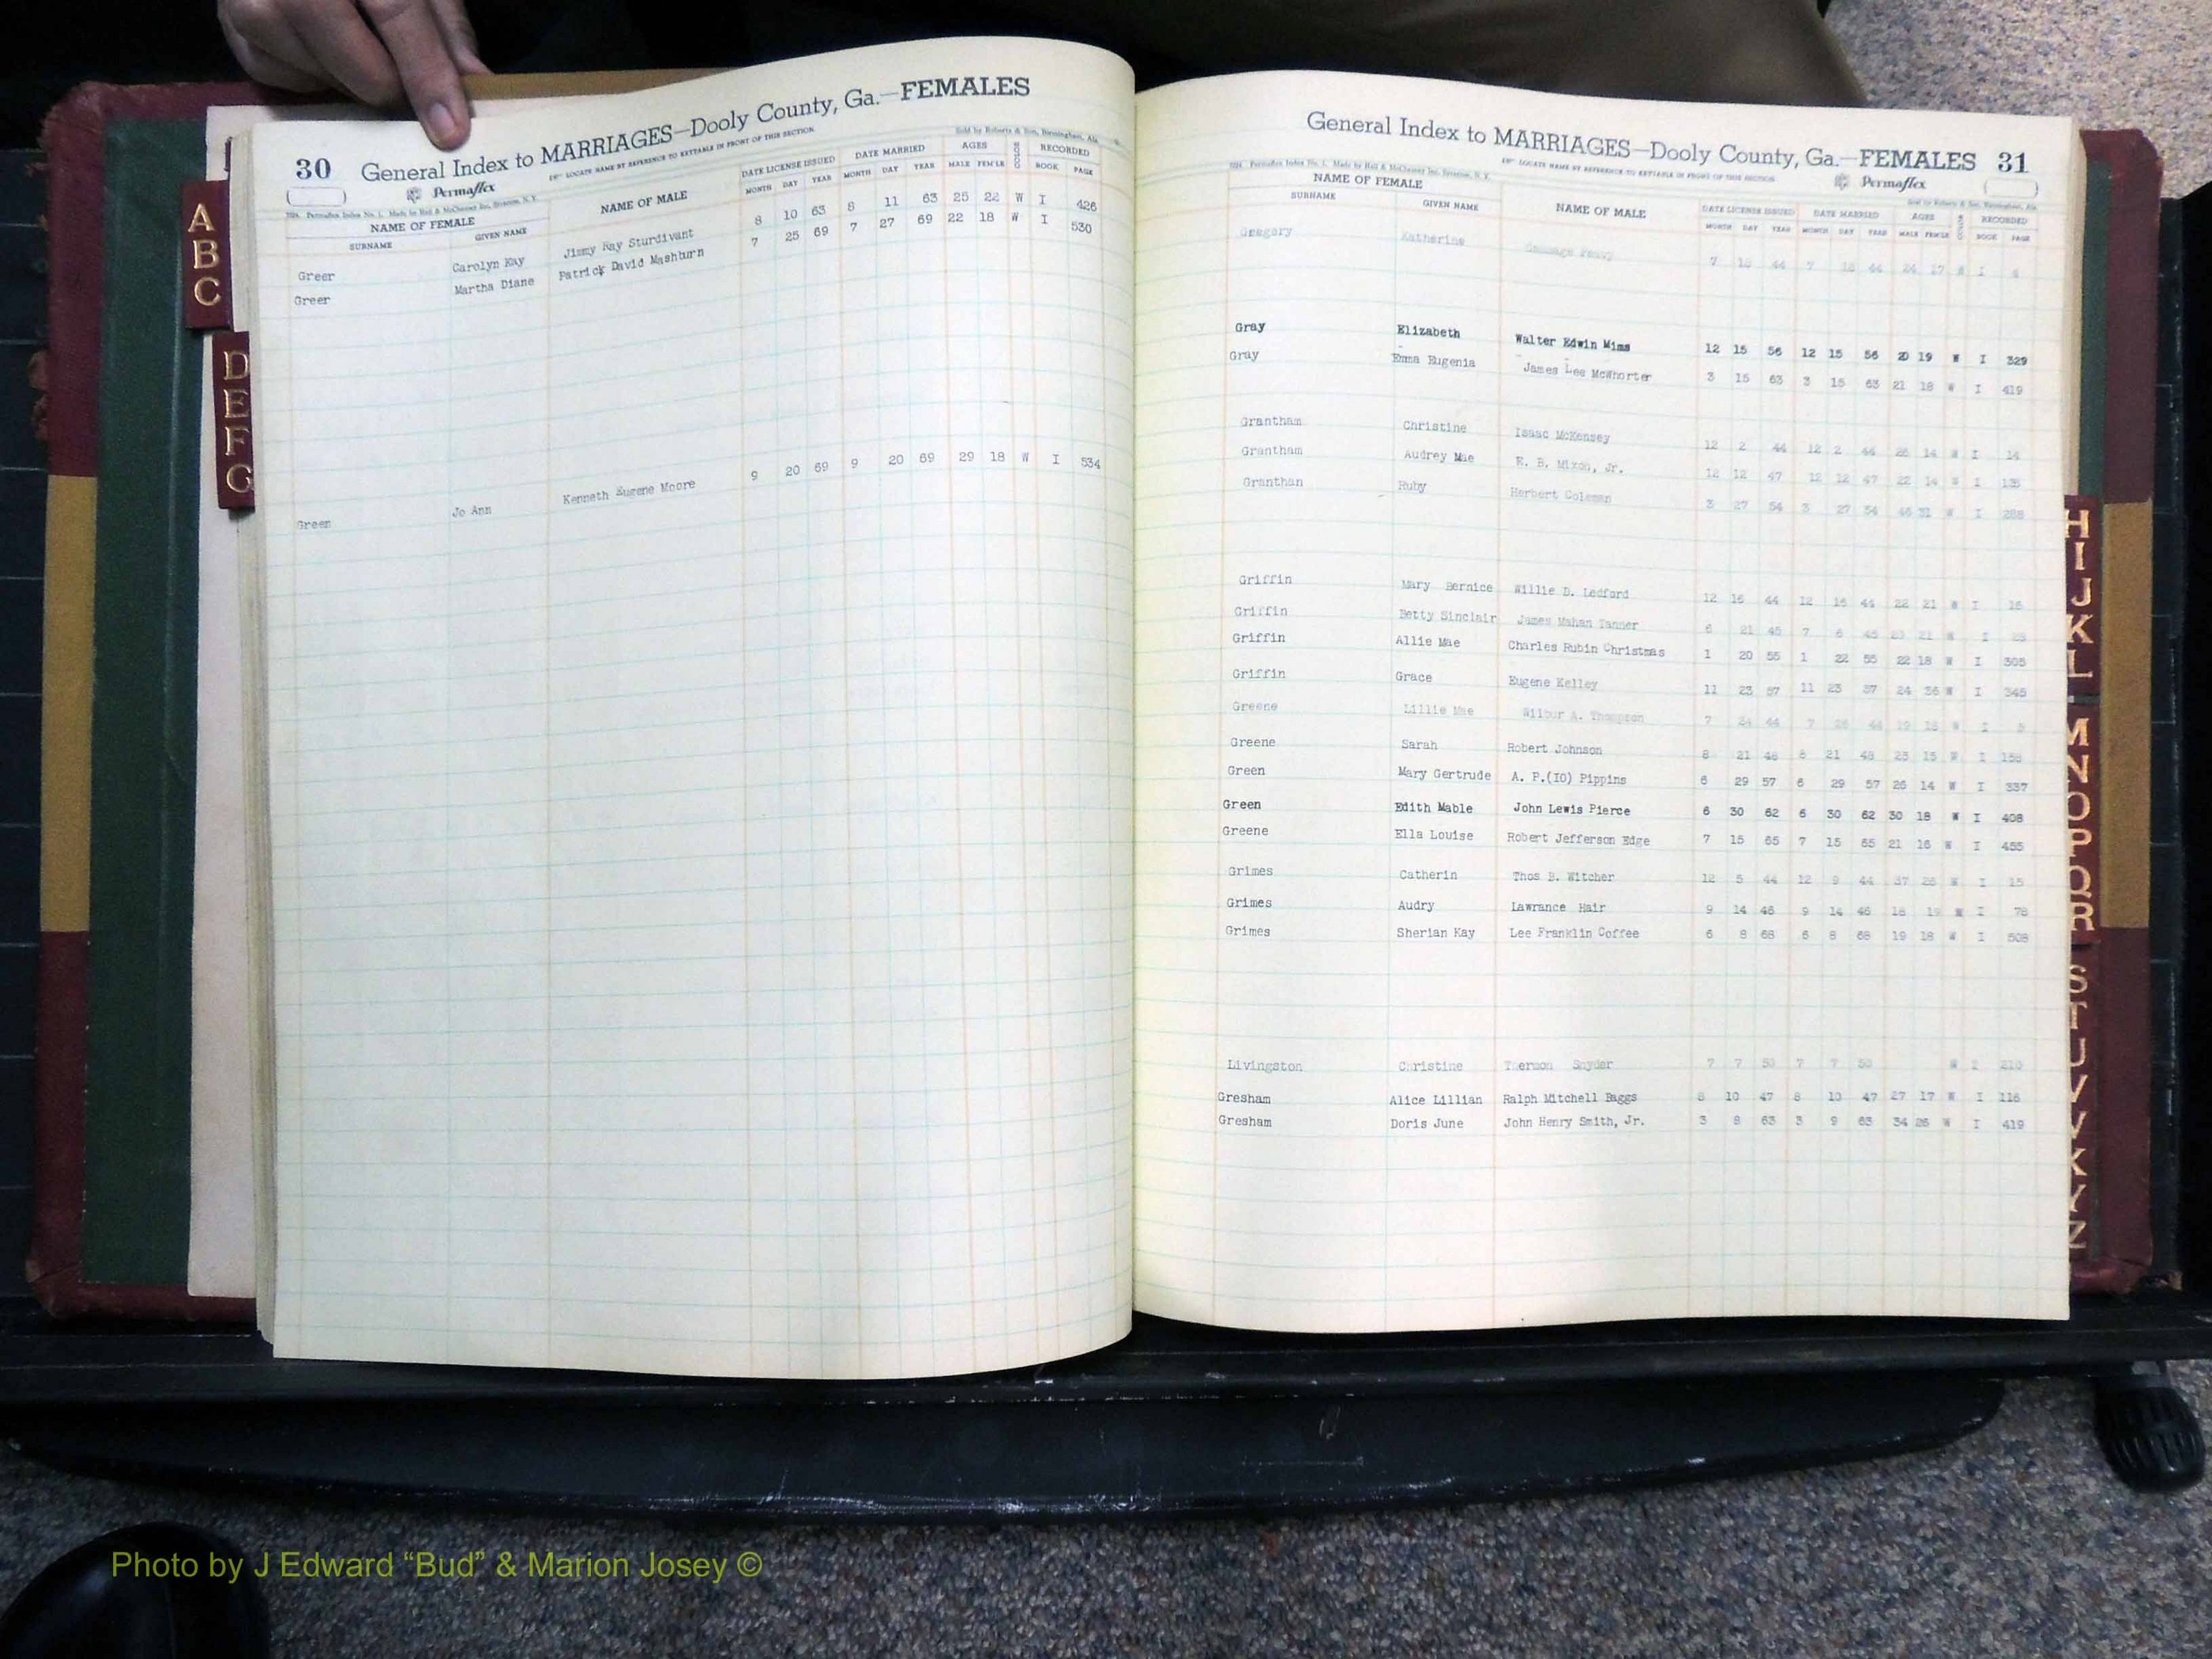 30 General Index to MARRIAGES—Dooly County, Ga.—FEMALES
Permaflex
LOCATE NAME BY REFERENCE TO KEYTABLE IN FRONT OF THIS SECTION
Sold by Roberts & Son, Birmingham, Ala.
NAME OF FEMALE NAME OF MALE DATE LICENSE ISSUED DATE MARRIED AGES COLOR RECORDED
SURNAME GIVEN NAME MONTH DAY YEAR MONTH DAY YEAR MALE FEM'LE BOOK PAGE
Greer Carolyn Kay Jimmy Ray Sturdivant 8 10 63 8 11 63 25 22 W I 426
Greer Martha Diane Patrick David Mashburn 7 25 69 7 27 69 22 18 W I 530
Green Jo Ann Kenneth Eugene Moore 9 20 69 9 20 69 29 18 W I 534
General Index to MARRIAGES—Dooly County, Ga.—FEMALES 31
LOCATE NAME BY REFERENCE TO KEYTABLE IN FRONT OF THIS SECTION
Permaflex
Sold by Roberts & Son, Birmingham, Ala.
NAME OF FEMALE NAME OF MALE DATE LICENSE ISSUED DATE MARRIED AGES COLOR RECORDED
SURNAME GIVEN NAME MONTH DAY YEAR MONTH DAY YEAR MALE FEM'LE BOOK PAGE
Gregory Katherine 7 44 7 44 24 17 W I
Gray Elizabeth Walter Edwin Mims 12 15 56 12 15 56 20 19 W I 329
Gray Emma Eugenia James Lee McWhorter 3 15 63 3 15 63 21 18 W I 419
Grantham Christine Isaac McKensey 12 2 44 12 2 44 14 W I 14
Grantham Audrey Mae E. B. Mixon, Jr. 12 12 47 12 12 47 22 14 W I 135
Granthan Ruby Herbert Coleman 3 27 54 3 27 54 46 31 W I 288
Griffin Mary Bernice Willie D. Ledford 12 16 44 12 16 44 22 21 W I 16
Griffin Betty Sinclair James Mahan Tanner 6 21 45 7 6 45 21 W I
Griffin Allie Mae Charles Rubin Christmas 1 20 55 1 22 55 22 18 W I 305
Griffin Grace Eugene Kelley 11 23 57 11 23 57 24 36 W I 345
Greene Lillie Mae Wilbur A. Thompson 7 24 44 7 44 19 18 W I
Greene Sarah Robert Johnson 8 21 48 8 21 48 23 15 W I 158
Green Mary Gertrude A. P.(IO) Pippins 6 29 57 6 29 57 26 14 W I 337
Green Edith Mable John Lewis Pierce 6 30 62 6 30 62 30 18 W I 408
Greene Ella Louise Robert Jefferson Edge 7 15 65 7 15 65 21 16 W I 455
Grimes Catherin Thos B. Witcher 12 5 44 12 9 44 37 26 W I 15
Grimes Audry Lawrance Hair 9 14 46 9 14 46 18 19 W I 78
Grimes Sherian Kay Lee Franklin Coffee 6 8 68 6 8 68 19 18 W I 508
Livingston Christine Thermon Snyder 7 7 50 7 7 50 W I 210
Gresham Alice Lillian Ralph Mitchell Baggs 8 10 47 8 10 47 27 17 W I 116
Gresham Doris June John Henry Smith, Jr. 3 8 63 3 9 63 34 26 W I 419
A
B
C
D
E
F
G
H
I
J
K
L
M
N
O
P
Q
R
S
T
U
V
Y
Z
Photo by J Edward “Bud” & Marion Josey ©